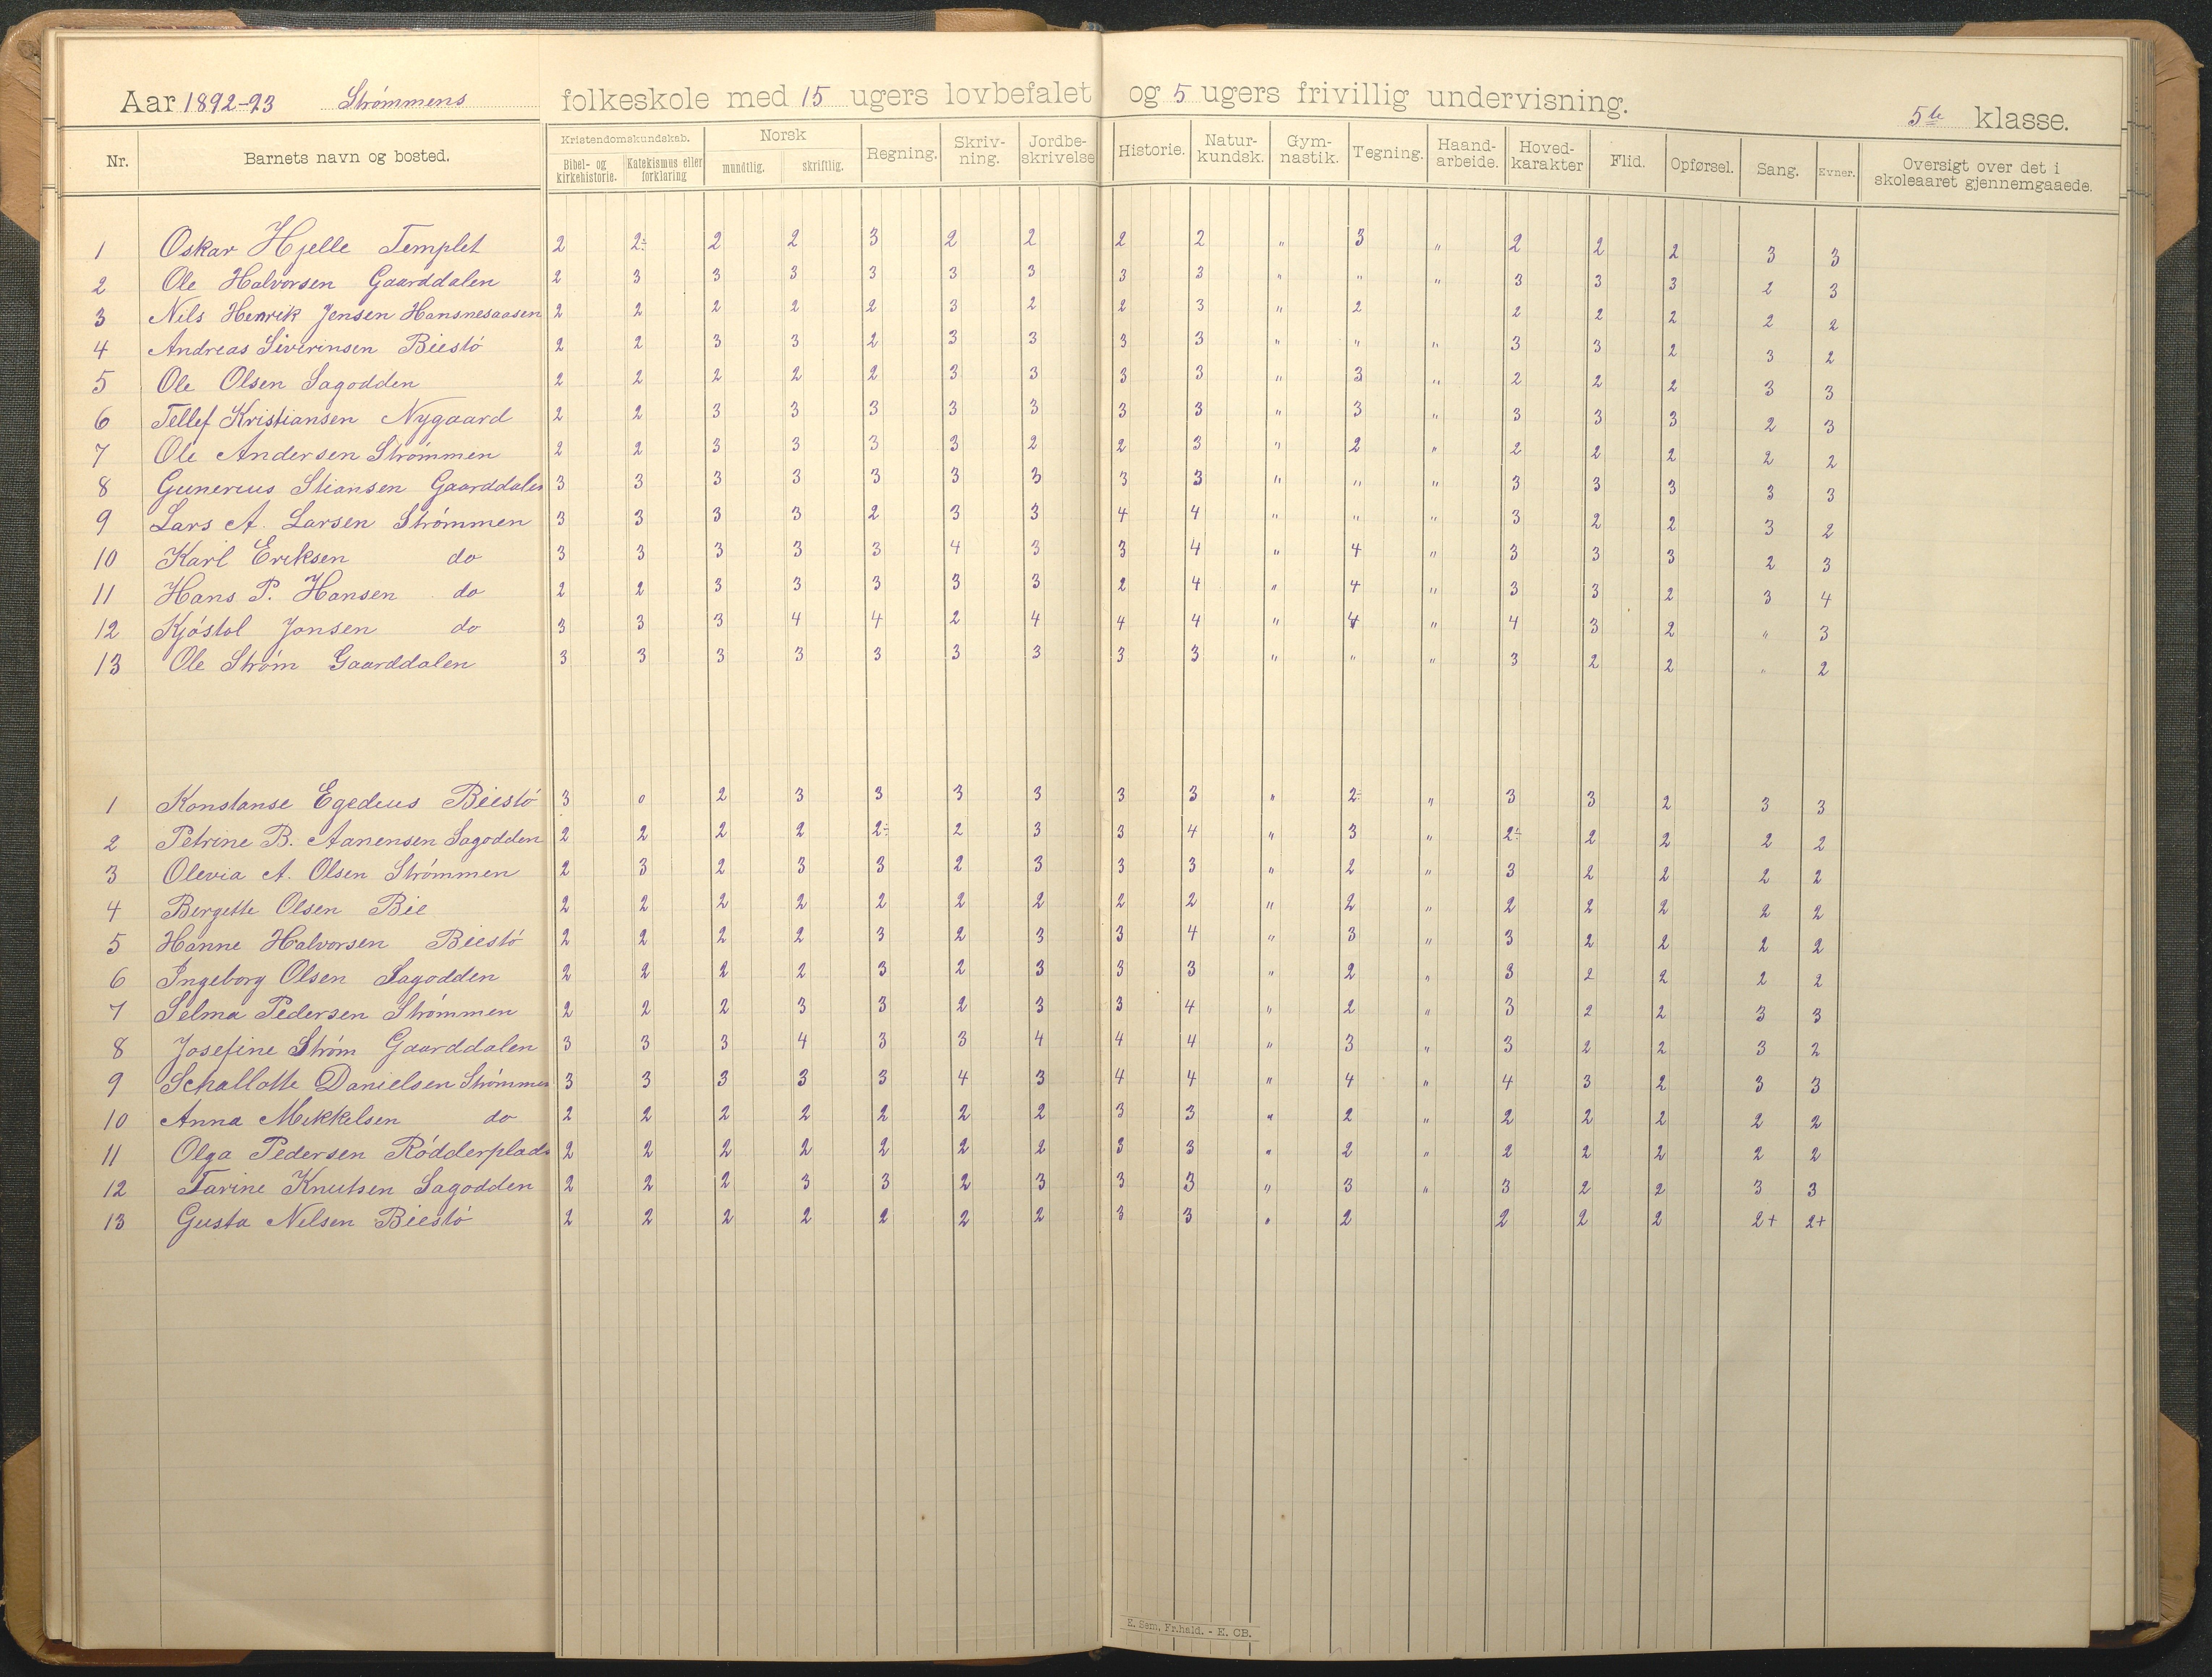 Aar 1892-93 Strømmens folkeskole med 15 ugers lovbefalet og 5 ugers frivillig undervisning. 5te klasse.
Nr. Barnets navn og bosted. Kristendomskundskab. Bibel- og kirkehistorie. Katekismus eller forklaring Norsk mundtlig. skriftlig. Regning. Skriv-ning. Jordbe-skrivelse Historie. Natur-kundsk. Gym-nastik. Tegning. Haand-arbeide. Hoved-karakter Flid. Opførsel. Sang. Evner. Oversigt over det i skoleaaret gjennemgaaede.
1 Oskar Hjelle Templet 2 2÷ 2 2 3 2 2 2 2 " 3 " 2 2 2 3 3
2 Ole Halvorsen Gaarddalen 2 3 3 3 3 3 3 3 3 " " " 3 3 3 2 3
3 Nils Henrik Jensen Hansnesaasen 2 2 2 2 2 3 2 2 3 " 2 2 2 2 2 2
4 Andreas Siverinsen Biestö 2 2 3 3 2 3 3 3 3 " " " 3 3 2 3 2
5 Ole Olsen Sagodden 2 2 2 2 2 3 3 3 3 " 3 " 2 2 2 3 3
6 Tellef Kristiansen Nygaard 2 2 3 3 3 3 3 3 3 " 3 " 3 3 3 2 3
7 Ole Andersen Strømmen 2 2 3 3 3 3 2 2 3 " 2 " 2 2 2 2 2
8 Gunerius Stiansen Gaarddalen 3 3 3 3 3 3 3 3 3 " " " 3 3 3 3 3
9 Lars A. Larsen Strømmen 3 3 3 3 2 3 3 4 4 " " " 3 2 2 3 2
10 Karl Eriksen do 3 3 3 3 3 4 3 3 4 " 4 " 3 3 3 2 3
11 Hans P. Hansen do 2 2 3 3 3 3 3 2 4 " 4 " 3 3 2 3 4
12 Kjöstol Jonsen do 3 3 3 4 4 2 4 4 4 " 4 " 4 3 2 " 3
13 Ole Strøm Gaarddalen 3 3 3 3 3 3 3 3 3 " " " 3 2 2 " 2
1 Konstanse Egedeus Biestö 3 0 2 3 3 3 3 3 3 " 2÷ " 3 3 2 3 3
2 Petrine B. Aanensen Sagodden 2 2 2 2 2÷ 2 3 3 4 " 3 " 2÷ 2 2 2 2
3 Olevia A. Olsen Strømmen 2 3 2 3 3 2 3 3 3 " 2 " 3 2 2 2 2
4 Bergette Olsen Bie 2 2 2 2 2 2 2 2 2 " 2 " 2 2 2 2 2
5 Hanne Halvorsen Biestö 2 2 2 2 3 2 3 3 4 " 3 " 3 2 2 2 2
6 Ingeborg Olsen Sagodden 2 2 2 2 3 2 3 3 3 " 2 " 3 2 2 2 2
7 Selma Pedersen Strømmen 2 2 2 3 3 2 3 3 4 " 2 " 3 2 2 3 3
8 Josefine Strøm Gaarddalen 3 3 3 4 3 3 4 4 4 " 3 " 3 2 2 3 2
9 Schallotte Danielsen Strømmen 3 3 3 3 3 4 3 4 4 " 4 " 4 3 2 3 3
10 Anna Mekkelsen do 2 2 2 2 2 2 2 3 3 " 2 " 2 2 2 2 2
11 Olga Pedersen Rödderplads 2 2 2 2 2 2 2 3 3 " 2 " 2 2 2 2 2
12 Tarine Knutsen Sagodden 2 2 2 3 3 2 3 3 3 " 3 " 3 2 2 3 3
13 Gusta Nelsen Biestö 2 2 2 2 2 2 2 3 3 " 2 2 2 2 2+ 2+
E. Sem, Fr.hald. - E. CB.